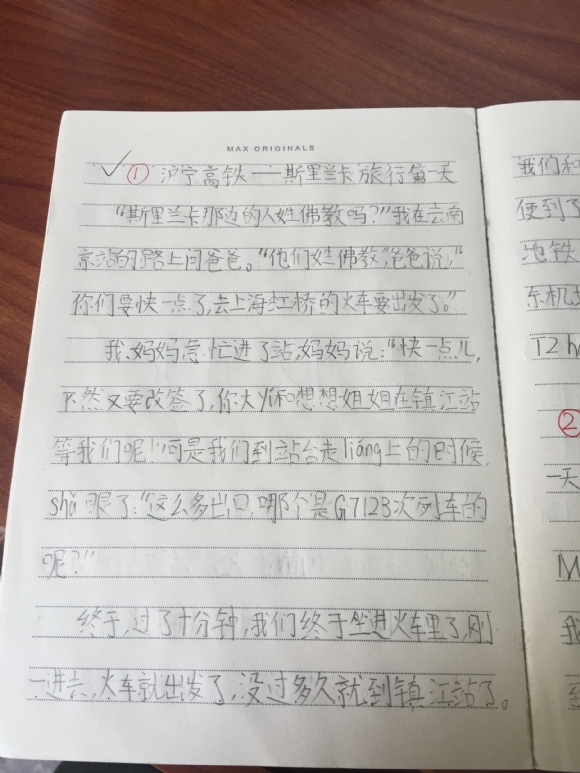 MAX ORIGINALS
① 沪宁高铁——斯里兰卡旅行第一天
"斯里兰卡那边的人姓佛教吗？"我在去南
京站的路上问爸爸。"他们姓佛教"爸爸说，"
你们要快一点了，去上海虹桥的火车要出发了。"
我、妈妈急忙进了站，妈妈说："快一点儿，
不然又要改签了，你大火和想想姐姐在镇江站
等我们呢！"可是我们到站台走liáng上的时候，
shǎ眼了："这么多出口，哪个是G7123次列车的
呢？"
终于，过了十分钟，我们终于坐进火车里了，刚
一进去，火车就出发了，没过多久就到镇江站了。
我们和
便到了
地铁
东机场
T2
②
一天
M
我